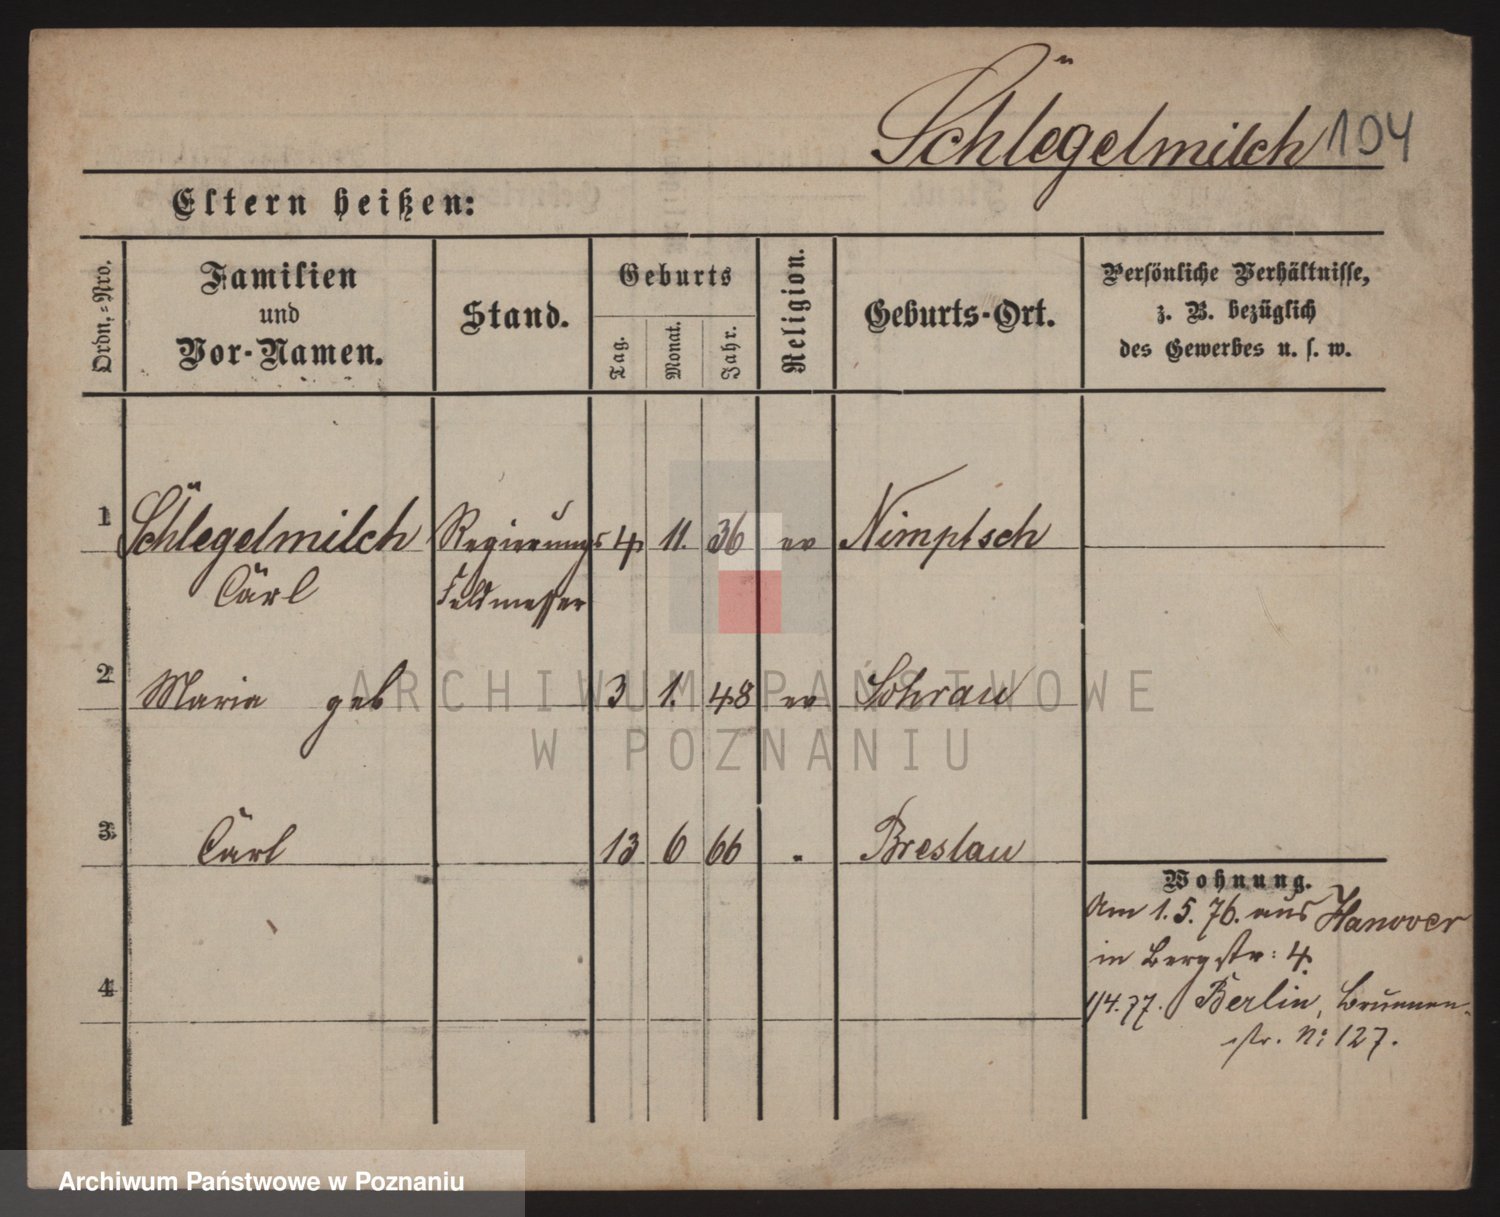 Schlegelmilch 104
Eltern heißen:
Ordn.-Nro.
Familien
und
Vor-Namen.
Stand.
Geburts
Tag.
Monat.
Jahr.
Religion.
Geburts-Ort.
Persönliche Verhältnisse,
z. B. bezüglich
des Gewerbes u. s. w.
1 Schlegelmilch Regierungs 4 11. 36 ev Nimptsch
Carl Feldmesser
2 Maria geb 3 1. 48 ev Sohrau
3 Carl 13 6 66 . Breslau
Wohnung.
Am 1.5.76. aus Hanover
in Bergstr: 4.
4
1/4.77. Berlin, Brunnen-
str. No 127.
ARCHIWUM PAŃSTWOWE
W POZNANIU
Archiwum Państwowe w Poznaniu